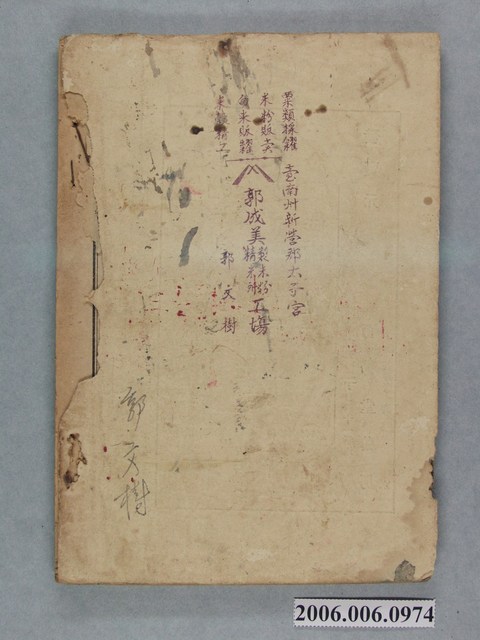 粟類採糴
米粉販賣
白米販糶
臺南州新營郡太子宮
郭成美製米粉精米所工場
郭文樹
郭文樹
2006.006.0974